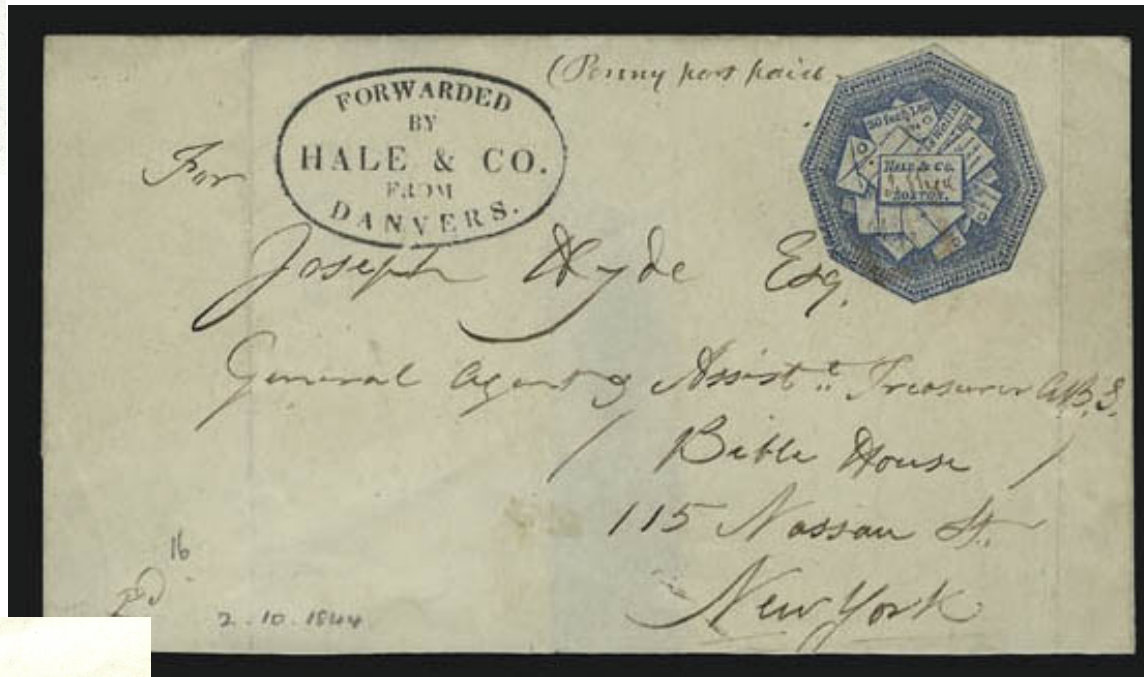 (Penny post paid
FORWARDED
BY
HALE & CO.
FROM
DANVERS.
20 for $1.00
HALE & CO.
BOSTON.
For
Joseph Hyde Esq.
General Agent & Assist.t Treasurer A.B.S.
Bible House
115 Nassau St.
New York
16
2.10.1844